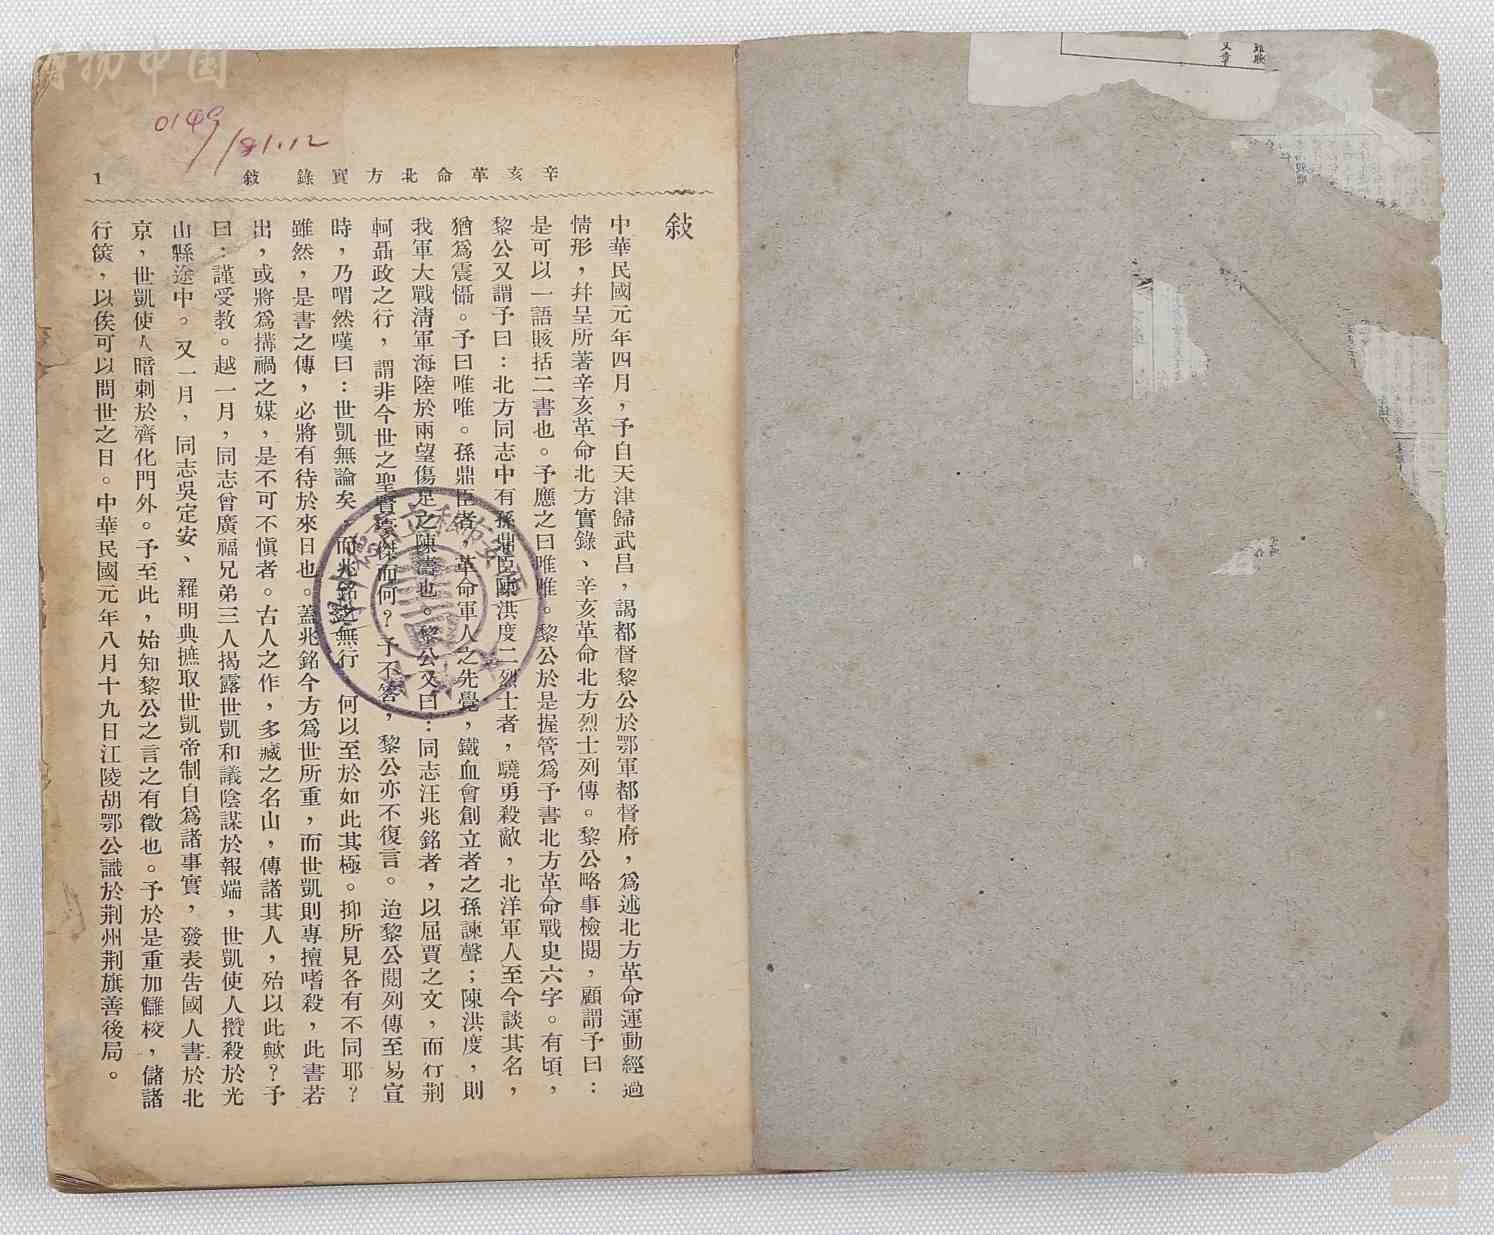 0149/81.12
辛亥革命北方實錄 敍 1
敍
中華民國元年四月，予自天津歸武昌，謁都督黎公於鄂軍都督府，爲述北方革命運動經過
情形，幷呈所著辛亥革命北方實錄、辛亥革命北方烈士列傳。黎公略事檢閱，顧謂予曰：
是可以一語賅括二書也。予應之曰唯唯。黎公於是握管爲予書北方革命戰史六字。有頃，
黎公又謂予曰：北方同志中有孫鼎臣陳洪度二烈士者，驍勇殺敵，北洋軍人至今談其名，
猶爲震懾。予曰唯唯。孫鼎臣者，革命軍人之先覺，鐵血會創立者之孫諫聲；陳洪度，則
我軍大戰淸軍海陸於兩望傷足之陳濤也。黎公又曰：同志汪兆銘者，以屈賈之文，而行荆
軻聶政之行，謂非今世之聖賢豪傑而何？予不答，黎公亦不復言。迨黎公閱列傳至易宣
時，乃喟然嘆曰：世凱無論矣，而兆銘之無行，何以至於如此其極。抑所見各有不同耶？
雖然，是書之傳，必將有待於來日也。蓋兆銘今方爲世所重，而世凱則專擅嗜殺，此書若
出，或將爲搆禍之媒，是不可不愼者。古人之作，多藏之名山，傳諸其人，殆以此歟？予
曰：謹受教。越一月，同志曾廣福兄弟三人揭露世凱和議陰謀於報端，世凱使人攢殺於光
山縣途中。又一月，同志吳定安、羅明典摭取世凱帝制自爲諸事實，發表告國人書於北
京，世凱使人暗刺於齊化門外。予至此，始知黎公之言之有徵也。予於是重加讎校，儲諸
行篋，以俟可以問世之日。中華民國元年八月十九日江陵胡鄂公識於荆州荆旗善後局。
博物中国